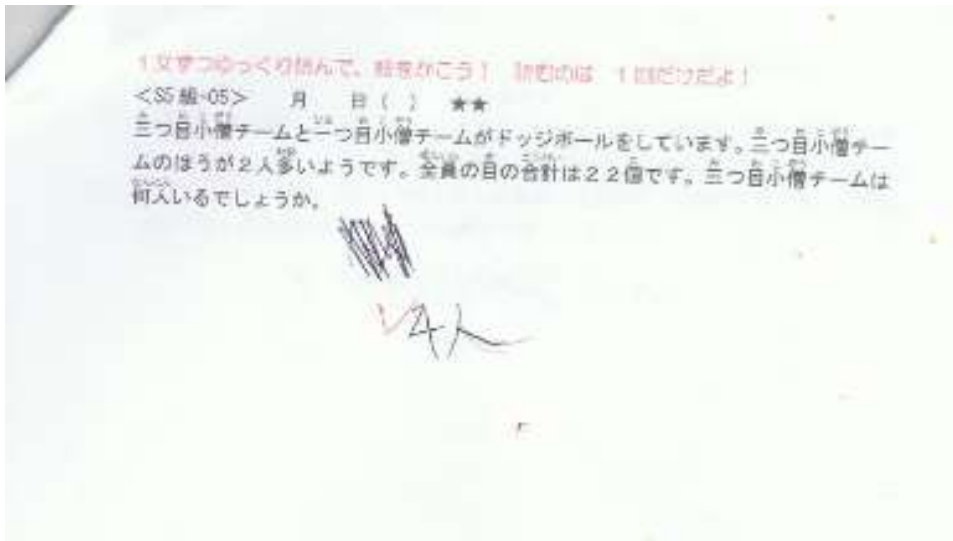 1文ずつゆっくり読んで、絵をかこう! 読むのは 1回だけだよ!
<S5級-05> 月 日( ) ★★
三つ目小僧チームと一つ目小僧チームがドッジボールをしています。三つ目小僧チー
ムのほうが2人多いようです。全員の目の合計は22個です。三つ目小僧チームは
何人いるでしょうか。
4人